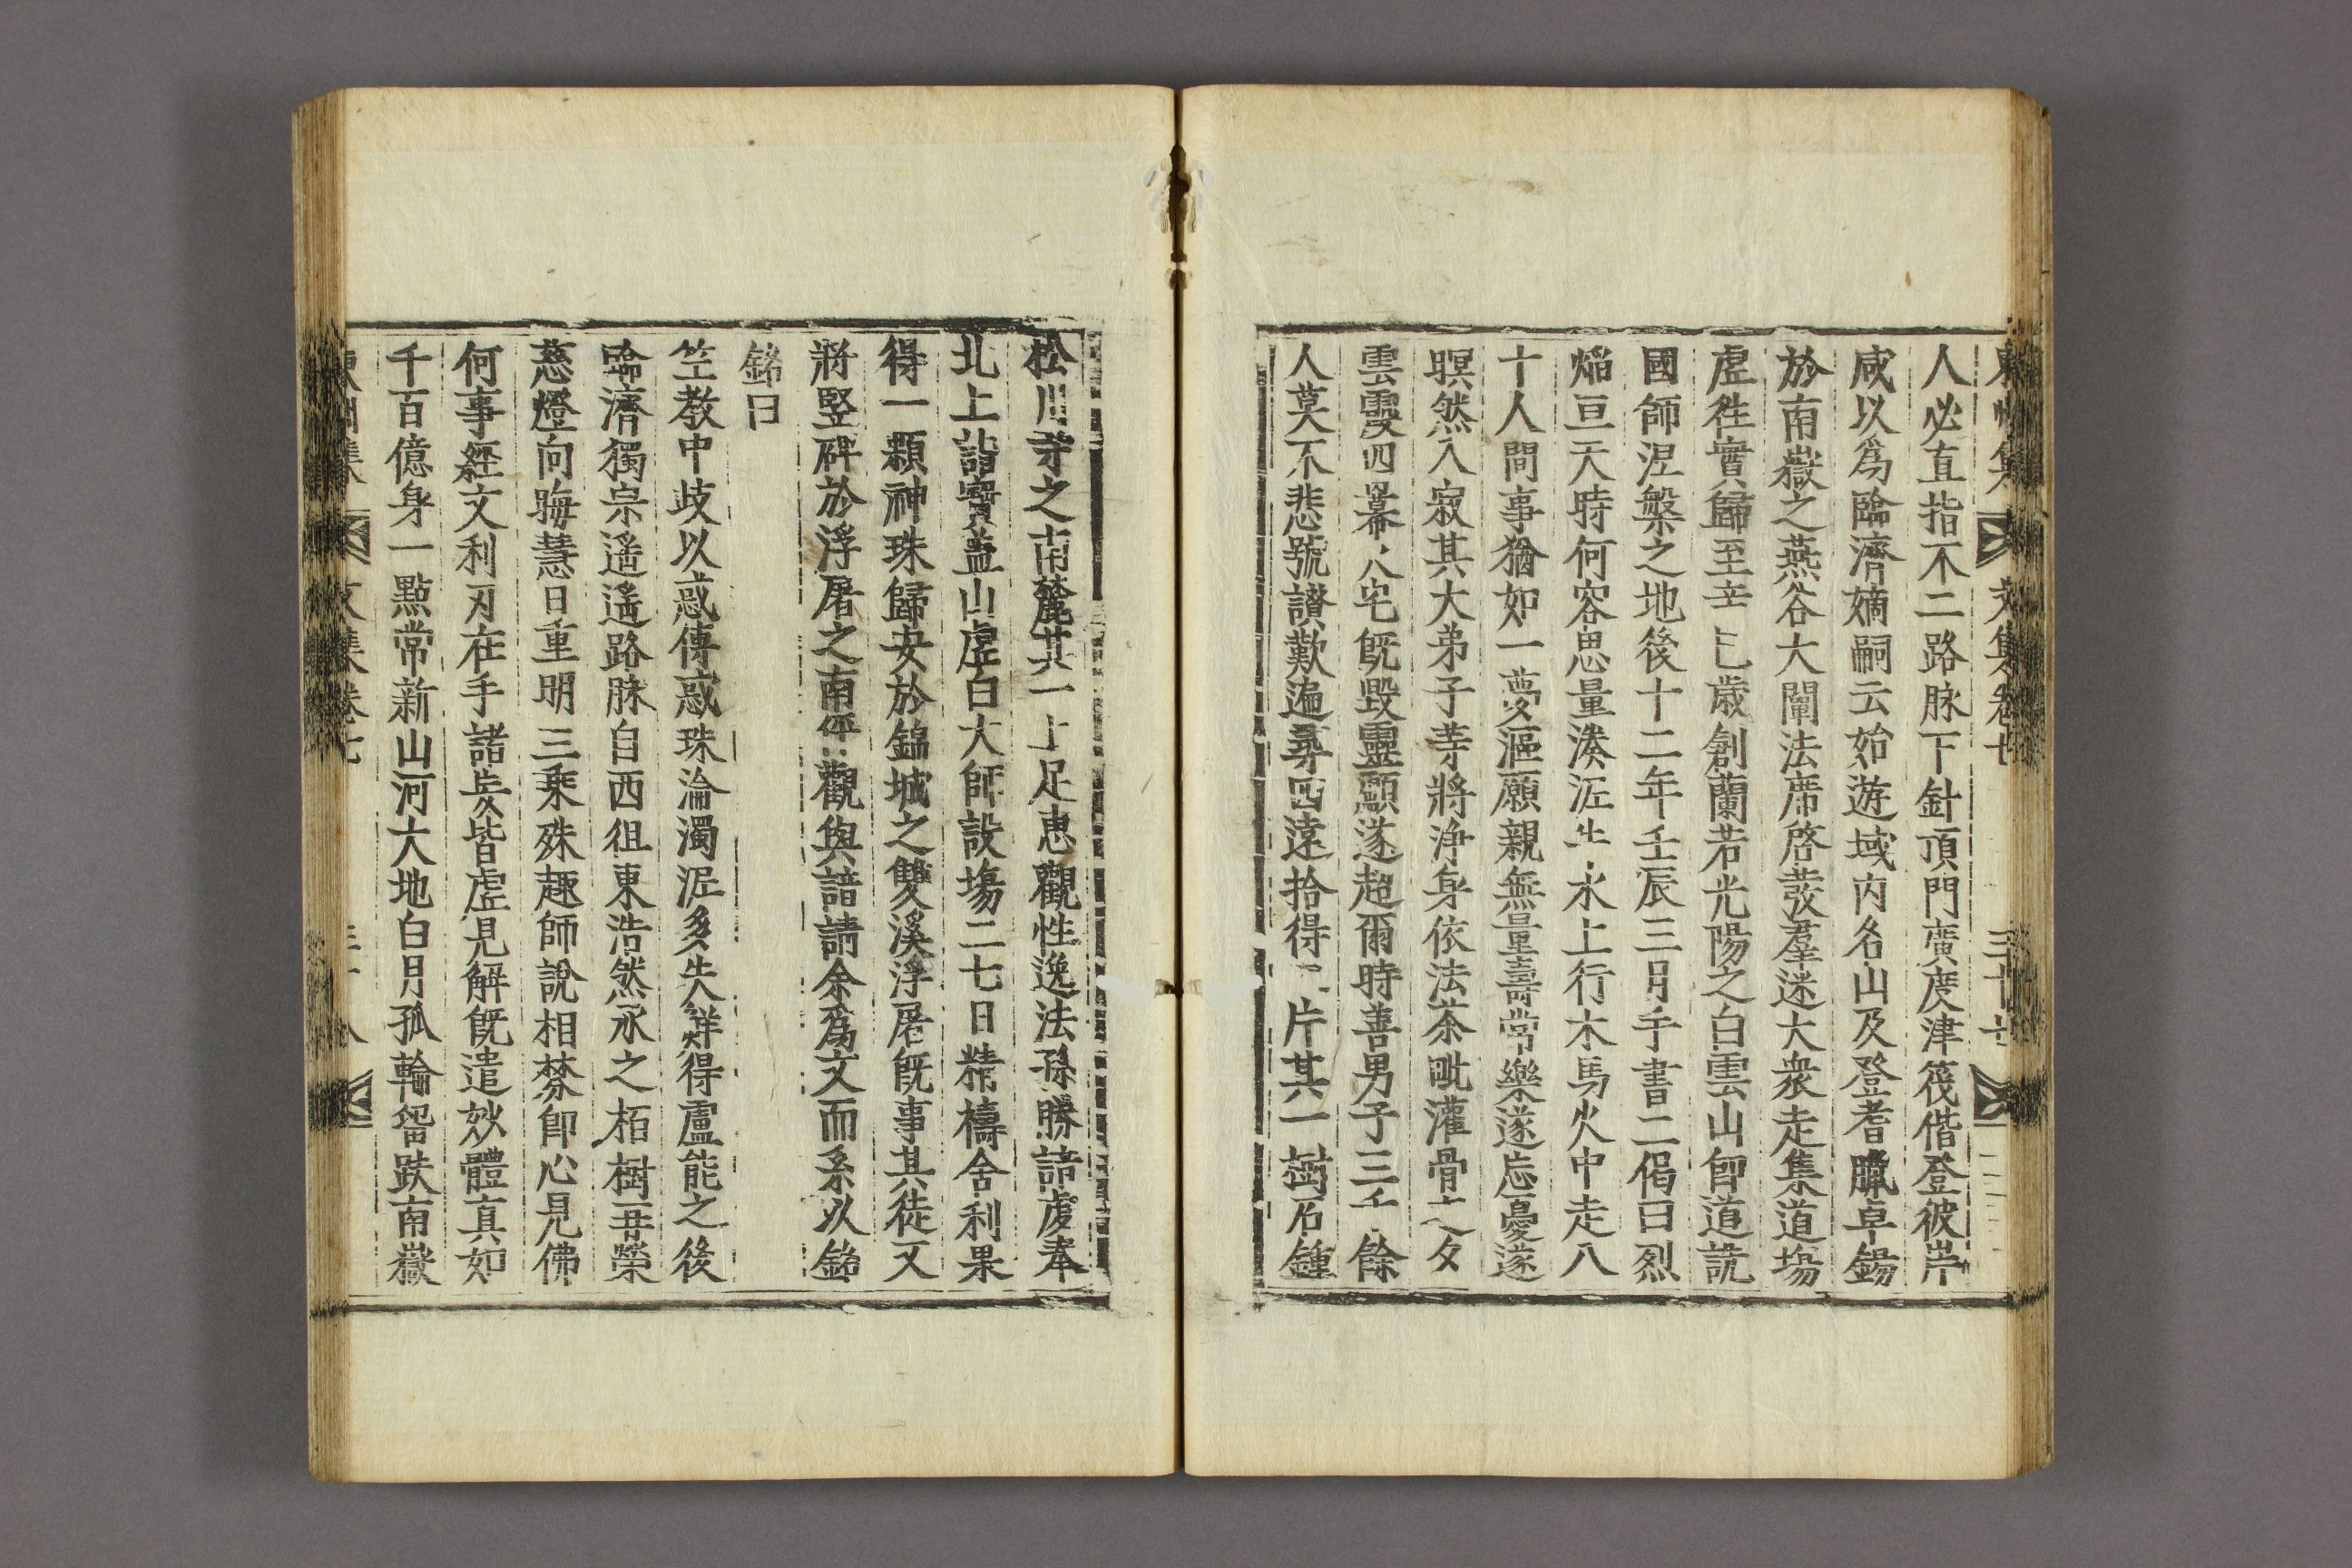 東州集 文集卷七 三十七
人必直指不二路脉下針頂門廣度津筏偕登彼岸
咸以爲臨濟嫡嗣云始遊域内名山及登耆臘卓錫
於南嶽之燕谷大闡法席啓發羣迷大衆走集道場
虛徃實歸至辛巳歲創蘭若光陽之白雲山卽道詵
國師涅槃之地後十二年壬辰三月手書二偈曰烈
焰亘天時何容思量湊泥牛水上行木馬火中走八
十人間事猶如一夢漚願親無量壽常樂遂忘憂遂
瞑然入寂其大弟子等將浄身依法茶毗灌骨之夕
雲霞四幕火宅旣毀靈顯遂超爾時善男子三千餘
人莫不悲號讃歎遍尋四遠拾得二片其一樹石鍾
松川寺之南麓其一上足惠觀性逸法孫勝諦虔奉
北上詣寶盖山虛白大師設塲二七日精禱舍利果
得一顆神珠歸安於錦城之雙溪浮屠旣事其徒又
將竪碑於浮屠之南 觀與諳請余爲文而系以銘
銘曰
竺教中歧以惑傳惑珠淪濁泥多失鮮得盧能之後
臨濟獨宗遥遥路脉自西徂東浩然承之栢樹再榮
慈燈向晦慧日重明三乘殊趣師說相棼卽心見佛
何事經文利刃在手諸妄皆虛見解旣遣妙體真如
千百億身一點常新山河大地白月孤輪磖趺南嶽
東州集 文集卷七 三十八